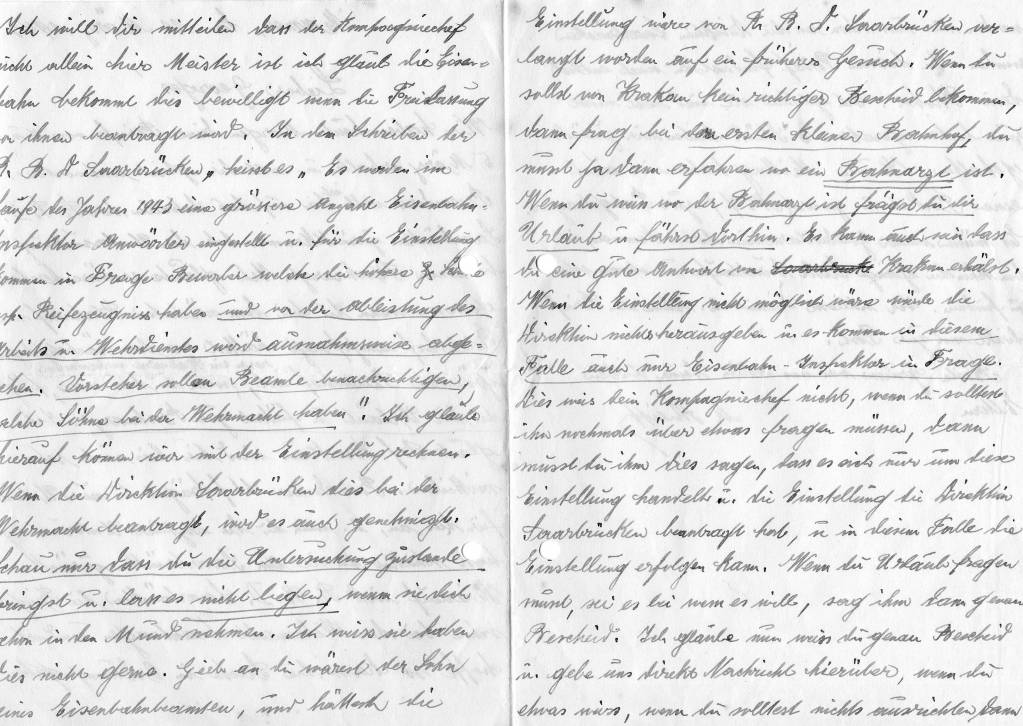 Ich will dir mitteilen dass der Kompagniechef
nicht allein hier Meister ist ich glaub die Eisen-
bahn bekommt dies bewilligt wenn die Freilassung
von ihnen beantragt wird. In dem Schreiben der
R. B. D Saarbrücken „ heist es „ Es werden im
Laufe des Jahres 1943 eine grössere Anzahl Eisenbahn-
Inspektor Anwärter eingestellt u. für die Einstellung
kommen in Frage Bewerber welche die höhere
Reifezeugniss haben und vor der Ableistung des
Arbeits u Wehrdienstes wird ausnahmsweise abge-
sehen. Vorsteher sollen Beamte benachrichtigen,
welche Söhne bei der Wehrmacht haben". Ich glaube
hierauf können wir mit der Einstellung rechnen.
Wenn die Direktion Saarbrücken dies bei der
Wehrmacht beantragt, wird es auch genehmigt.
Schau nur dass du die Untersuchung zustande
bringst u. lass es nicht liegen, wenn sie dich
schon in den Mund nehmen. Ich weiss sie haben
dies nicht gerne. Gebe an du wärest der Sohn
eines Eisenbahnbeamten, und hättest die
Einstellung wäre von R. B. D. Saarbrücken ver-
langt worden auf ein früheres Gesuch. Wenn du
sollst von Krakau kein richtiger Bescheid bekommen,
dann frag bei dem ersten kleinen Bahnhof, du
musst ja dann erfahren wo ein Bahnarzt ist.
Wenn du weis wo der Bahnarzt ist frägst du dir
Urlaub u fährst dorthin. Es kann auch sein dass
du eine gute Antwort von Krakau erhälst.
Wenn die Einstellung nicht möglich wäre würde die
Direktion nichts herausgeben u es kommen in diesem
Falle auch nur Eisenbahn-Inspektor in Frage.
Dies weis dein Kompagniechef nicht, wenn du solltest
ihn nochmals über etwas fragen müssen, dann
musst du ihm dies sagen, dass es sich nur um diese
Einstellung handelt u. die Einstellung die Direktion
Saarbrücken beantragt hat, u in diesem Falle die
Einstellung erfolgen kann. Wenn du Urlaub fragen
musst, sei es bei wem es will, sag ihm dann genau
Bescheid. Ich glaube nun weiss du genau Bescheid
u. gebe uns direkt Nachricht hierüber, wenn du
etwas weiss, wenn du solltest nichts ausrichten dann